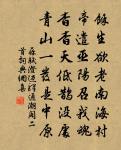 餘生欲老南海村
帝遣巫陽召我魂
杳杳天低鶻沒處
青山一髮是中原
蘇軾澄邁驛通潮閣二
首詞典網集